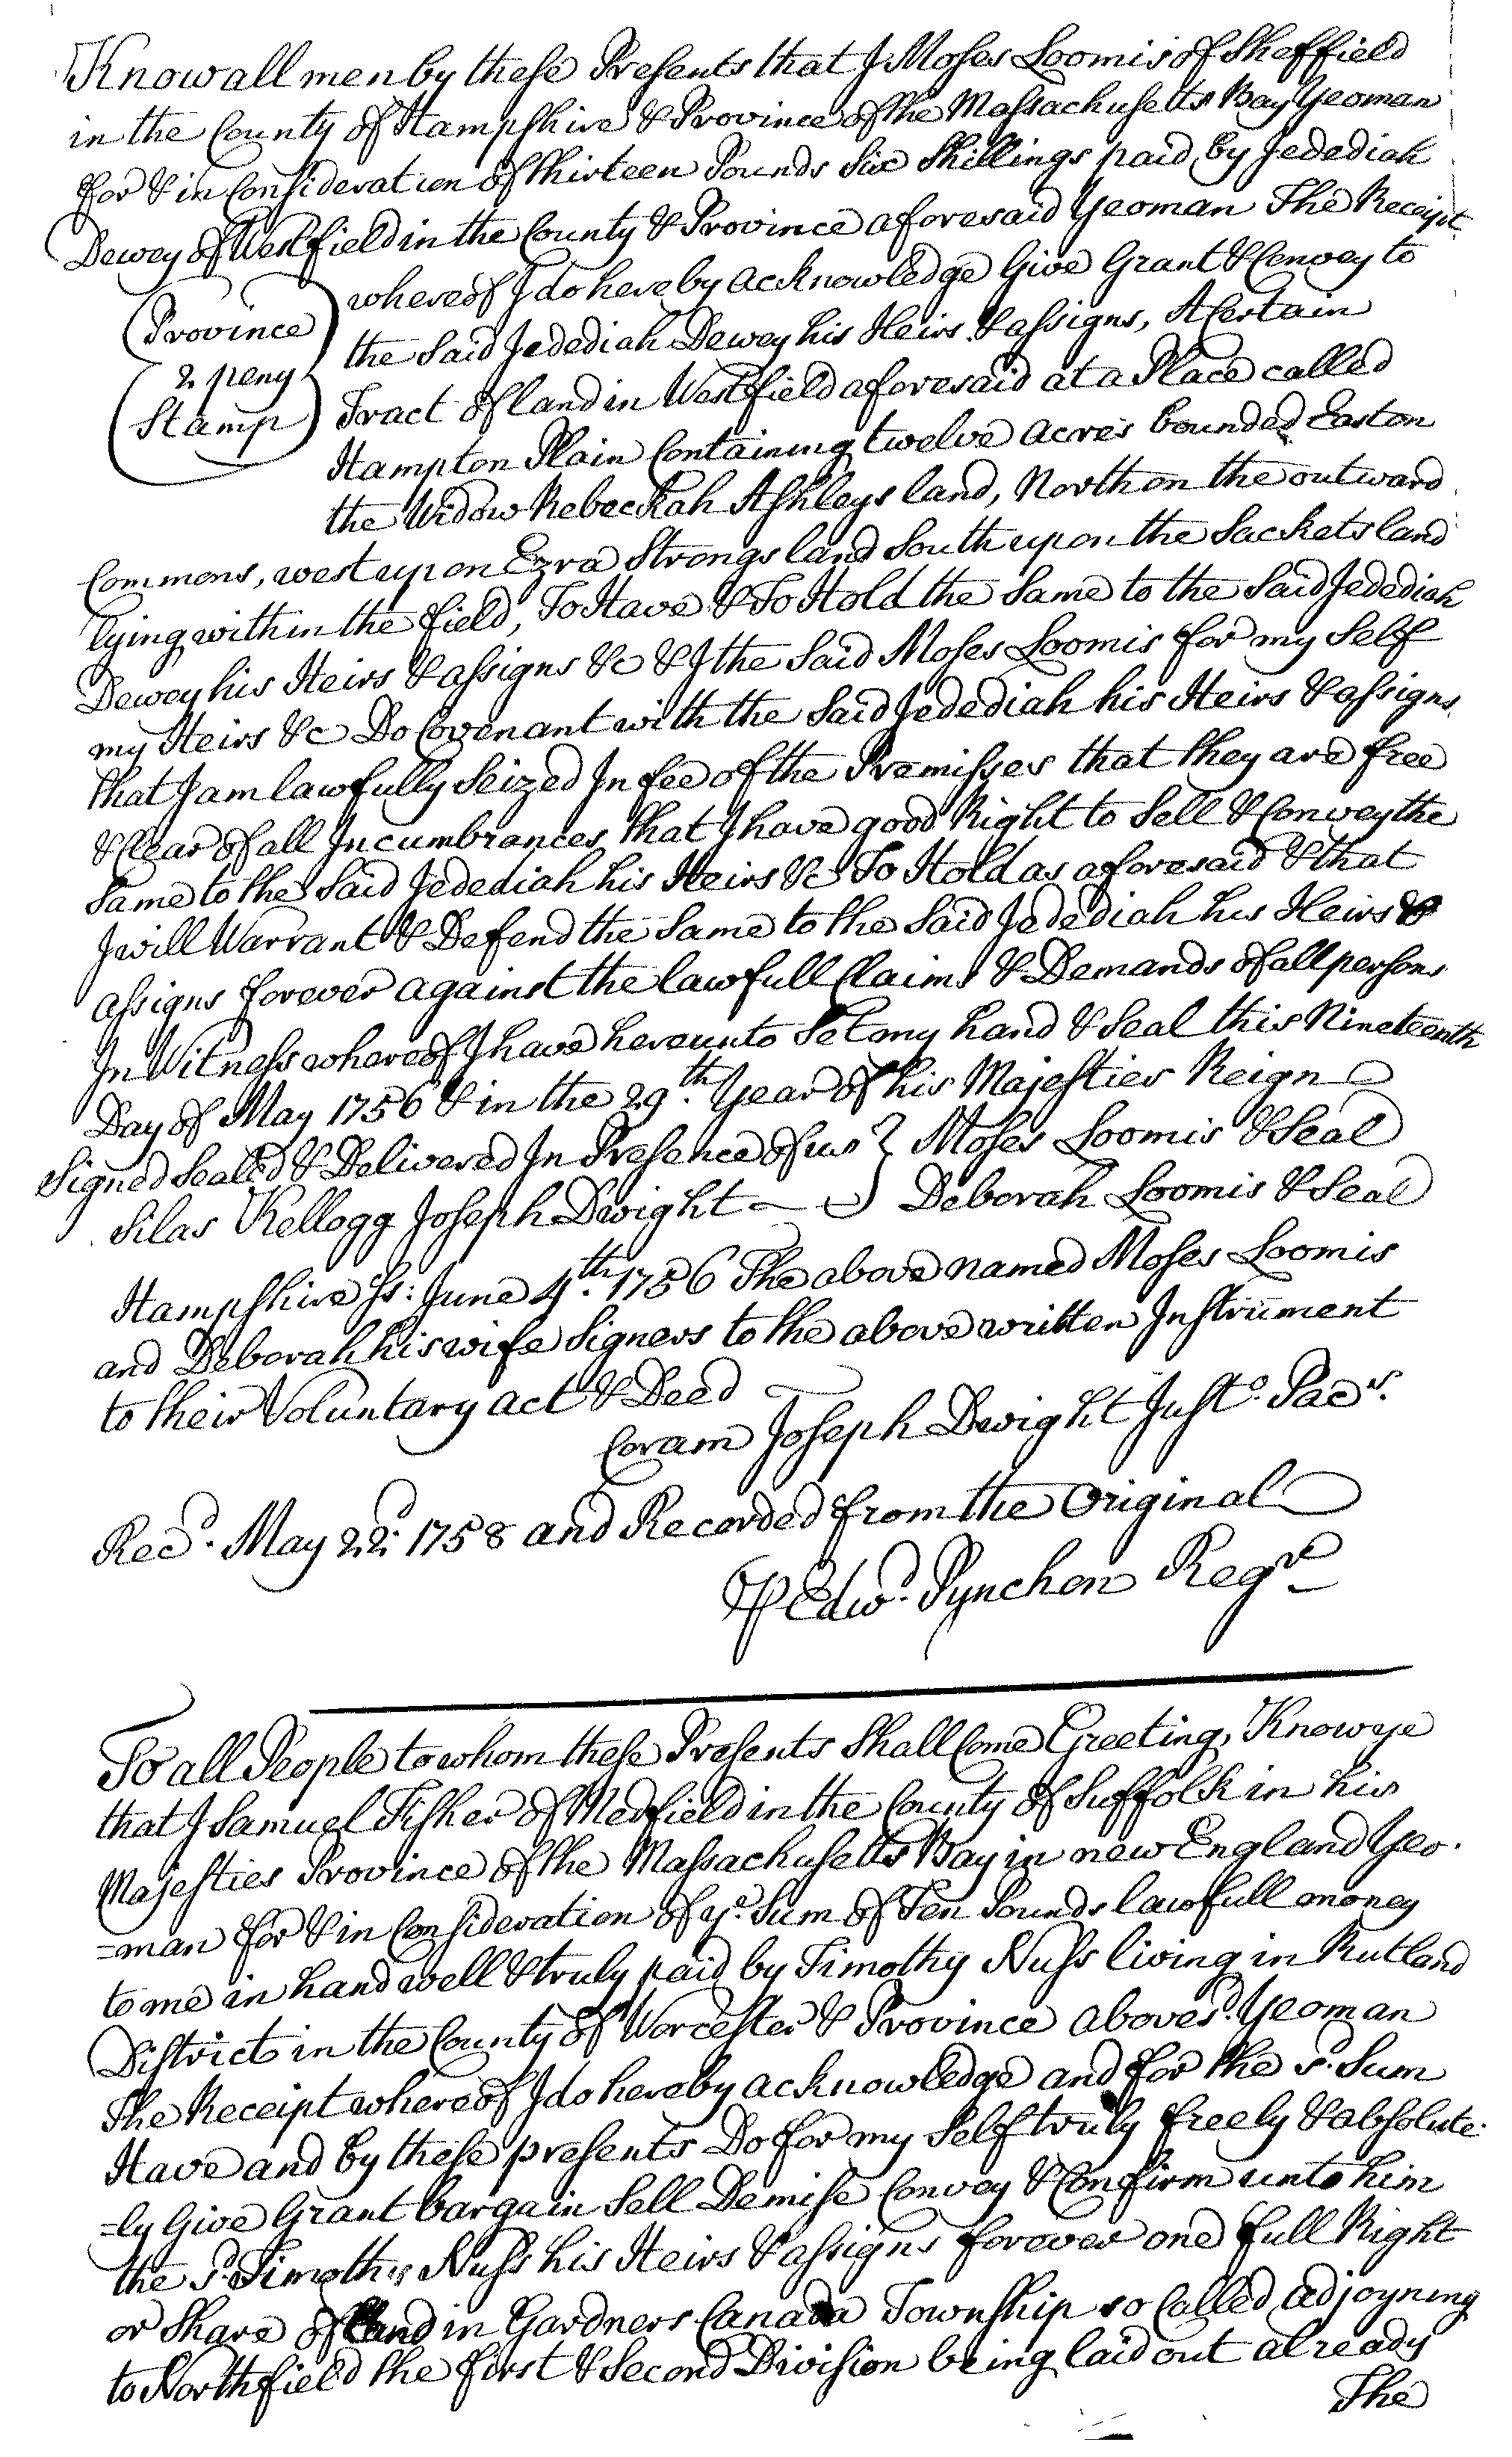 Know all men by these Presents that I Moses Loomis of Sheffield
in the County of Hampshire & Province of the Massachusetts Bay Yeoman
for & in Consideration of Thirteen Pounds Six Shillings paid by Jedediah
Dewey of Westfield in the County & Province aforesaid Yeoman The Receipt
whereof I do hereby acknowledge Give Grant & Convey to
the Said Jedediah Dewey his Heirs & assigns, A Certain
Province
2 peny
Stamp
Tract of land in Westfield aforesaid at a Place called
Hampton Plain Containing twelve acres bounded East on
the Widow Rebeckah Ashleys land, North on the outward
Commons, west upon Ezra Strongs land South upon the Sackets land
lying within the field, To Have & To Hold the Same to the Said Jedediah
Dewey his Heirs & assigns &c & I the Said Moses Loomis for my Self
my Heirs &c Do Covenant with the Said Jedediah his Heirs & assigns
that I am lawfully Seized In fee of the Premisses that they are free
& Clear of all Incumbrances, that I have good Right to Sell & Convey the
Same to the Said Jedediah his Heirs &c To Hold as aforesaid & that
I will Warrant & Defend the Same to the Said Jedediah his Heirs &
assigns forever against the lawfull Claims & Demands of all persons
In Witness whereof I have hereunto Set my hand & Seal this Nineteenth
Day of May 1756 & in the 29th. Year of his Majesties Reign
Signed Sealed & Delivered In Presence of us } Moses Loomis & Seal
Silas Kellogg Joseph Dwight } Deborah Loomis & Seal
Hampshire Ss: June 4th. 1756 The above named Moses Loomis
and Deborah his wife Signers to the above written Instrument
to their Voluntary act & Deed
Coram Joseph Dwight Justo. Pacs.
Recd. May 22d. 1758 and Recorded from the Original
P Edwd. Pynchon Regr
To all People to whom these Presents Shall Come Greeting, Know ye
that I Samuel Fisher of Medfield in the County of Suffolk in his
Majesties Province of the Massachusetts Bay in new England Yeo.
=man for & in Consideration of ye. Sum of Ten Pounds lawfull money
to me in hand well & truly paid by Timothy Nuss living in Rutland
District in the County of Worcester & Province abovesd. Yeoman
The Receipt whereof I do hereby acknowledge and for the sd. Sum
Have and by these presents Do for my Self truly freely & absolute-
=ly Give Grant bargain Sell Demise Convey & Confirm unto him
the sd. Timothy Nuss his Heirs & assigns forever one full Right
or Share of land in Gardners Canada Township so Called adjoyning
to Northfield the first & Second Division being laid out already
The